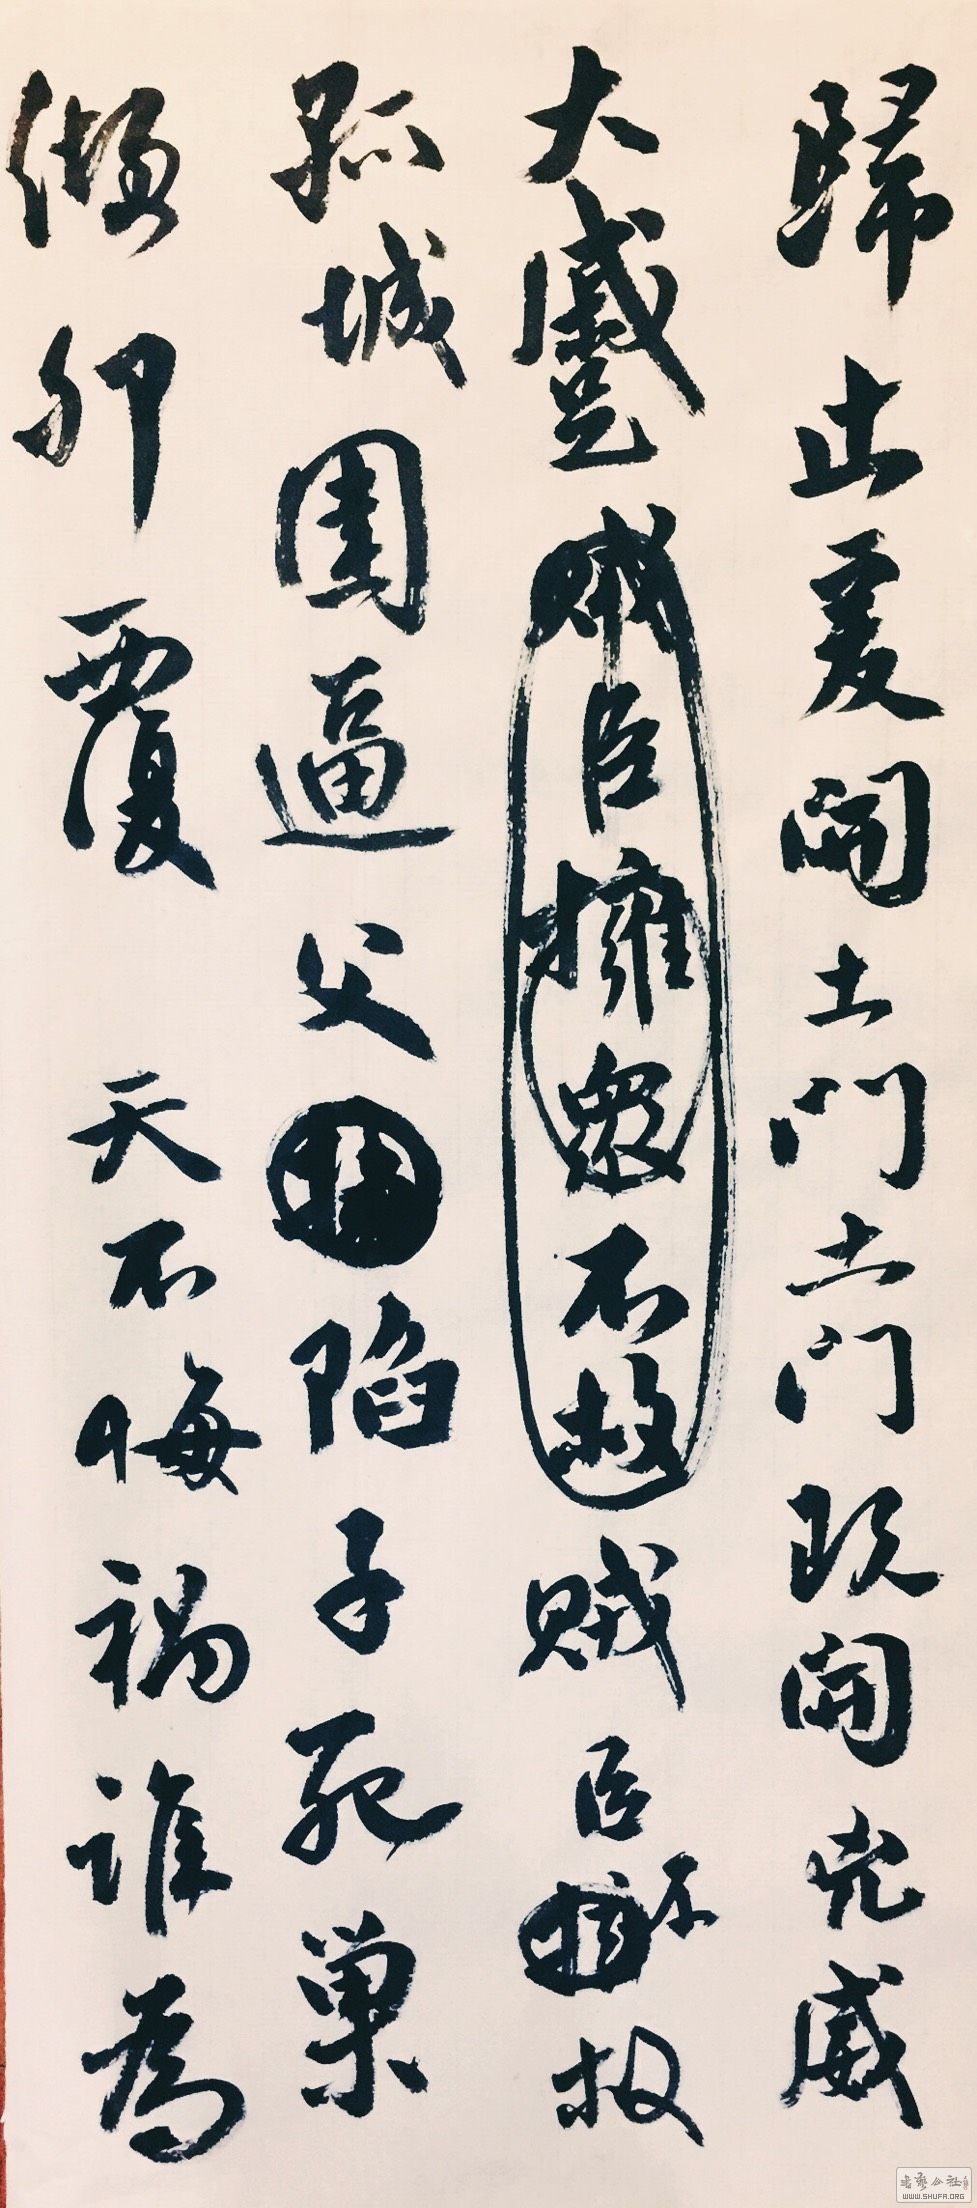 歸止爰開土門土門既開兇威
大蹙賊臣擁眾不救賊臣不救
孤城圍逼父陷子死巢
傾卵覆天不悔禍誰為
WWW.SHUFA.ORG